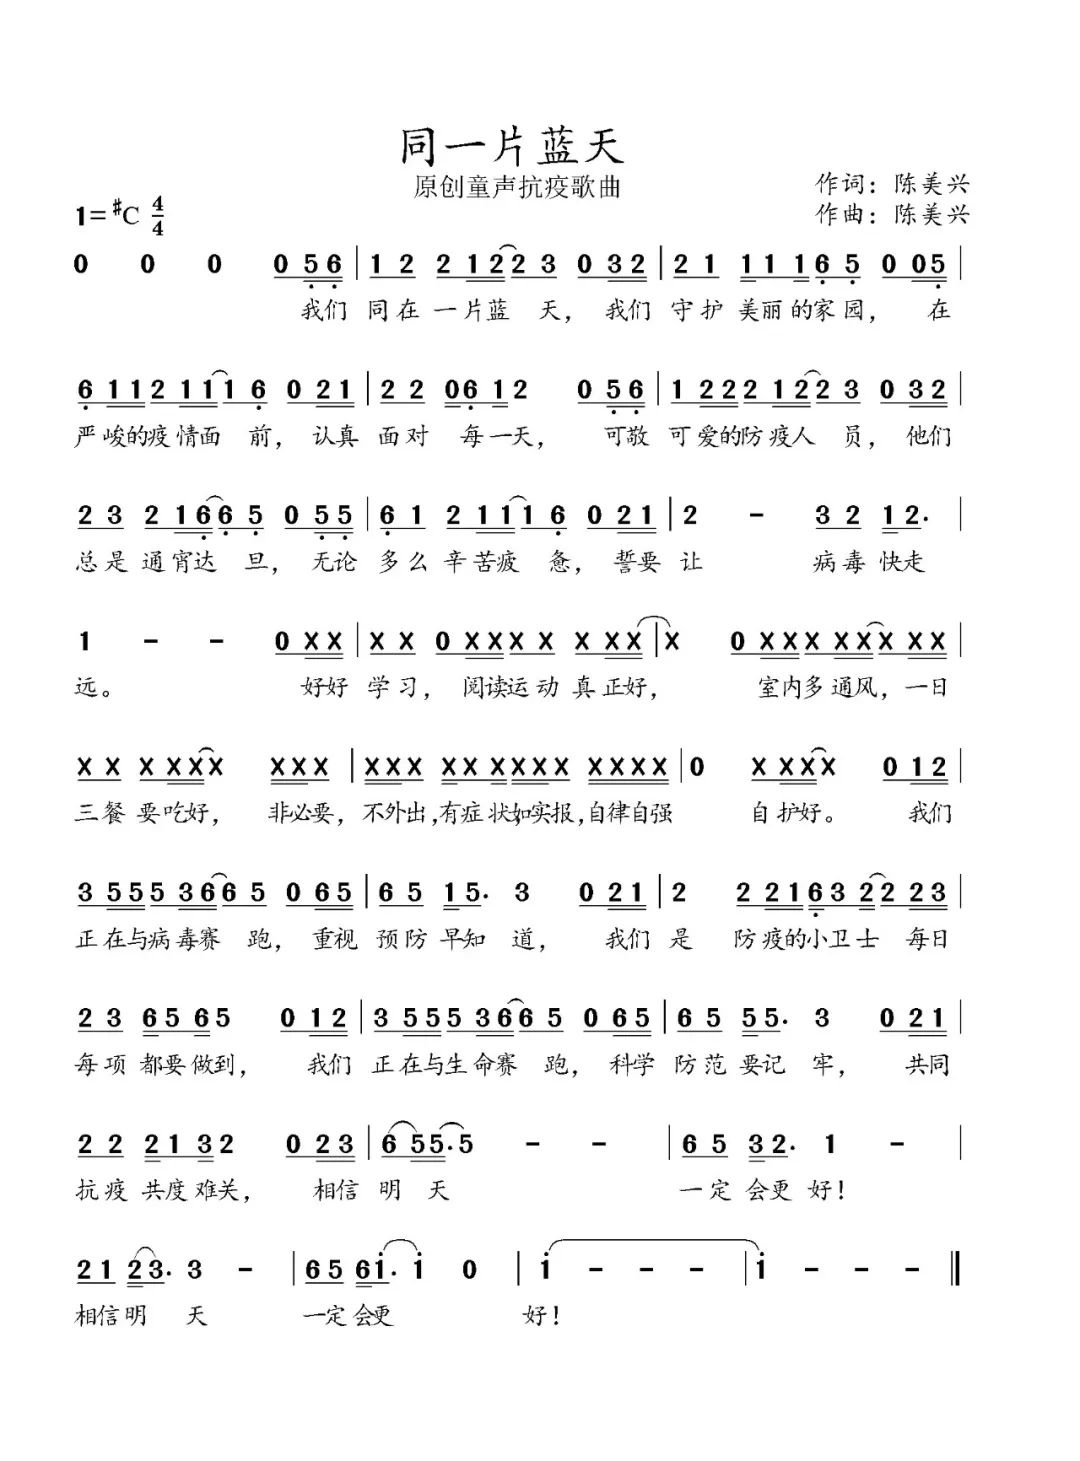 同一片蓝天
原创童声抗疫歌曲
作词：陈美兴
1=♯C 4/4
作曲：陈美兴
0 0 0 0 5 6 | 1 2 2 1 2 2 3 0 3 2 | 2 1 1 1 1 6 5 0 0 5 |
我们 同在 一片蓝 天， 我们 守护 美丽的家园， 在
6 1 1 2 1 1 1 6 0 2 1 | 2 2 0 6 1 2 0 5 6 | 1 2 2 2 1 2 2 3 0 3 2 |
严峻的疫情面 前， 认真 面对 每一天， 可敬 可爱的防疫人 员， 他们
2 3 2 1 6 6 5 0 5 5 | 6 1 2 1 1 1 6 0 2 1 | 2 - 3 2 1 2. |
总是 通宵达 旦， 无论 多么 辛苦疲 惫， 誓要 让 病毒 快走
1 - - 0 X X | X X 0 X X X X X X X | X 0 X X X X X X X X |
远。 好好 学习， 阅读运动 真正好， 室内多通风，一日
X X X X X X X X X | X X X X X X X X X X X X X | 0 X X X X 0 1 2 |
三餐 要吃好， 非必要， 不外出，有症状如实报，自律自强 自护好。 我们
3 5 5 5 3 6 6 5 0 6 5 | 6 5 1 5. 3 0 2 1 | 2 2 2 1 6 3 2 2 2 3 |
正在与病毒赛 跑， 重视 预防 早知 道， 我们 是 防疫的小卫士 每日
2 3 6 5 6 5 0 1 2 | 3 5 5 5 3 6 6 5 0 6 5 | 6 5 5 5. 3 0 2 1 |
每项 都要做到， 我们 正在与生命赛 跑， 科学 防范 要记 牢， 共同
2 2 2 1 3 2 0 2 3 | 6 5 5. 5 - - | 6 5 3 2. 1 - |
抗疫 共度难关， 相信 明天 一定 会更 好！
2 1 2 3. 3 - | 6 5 6 i. i 0 | i - - - | i - - - ‖
相信明 天 一定会更 好！